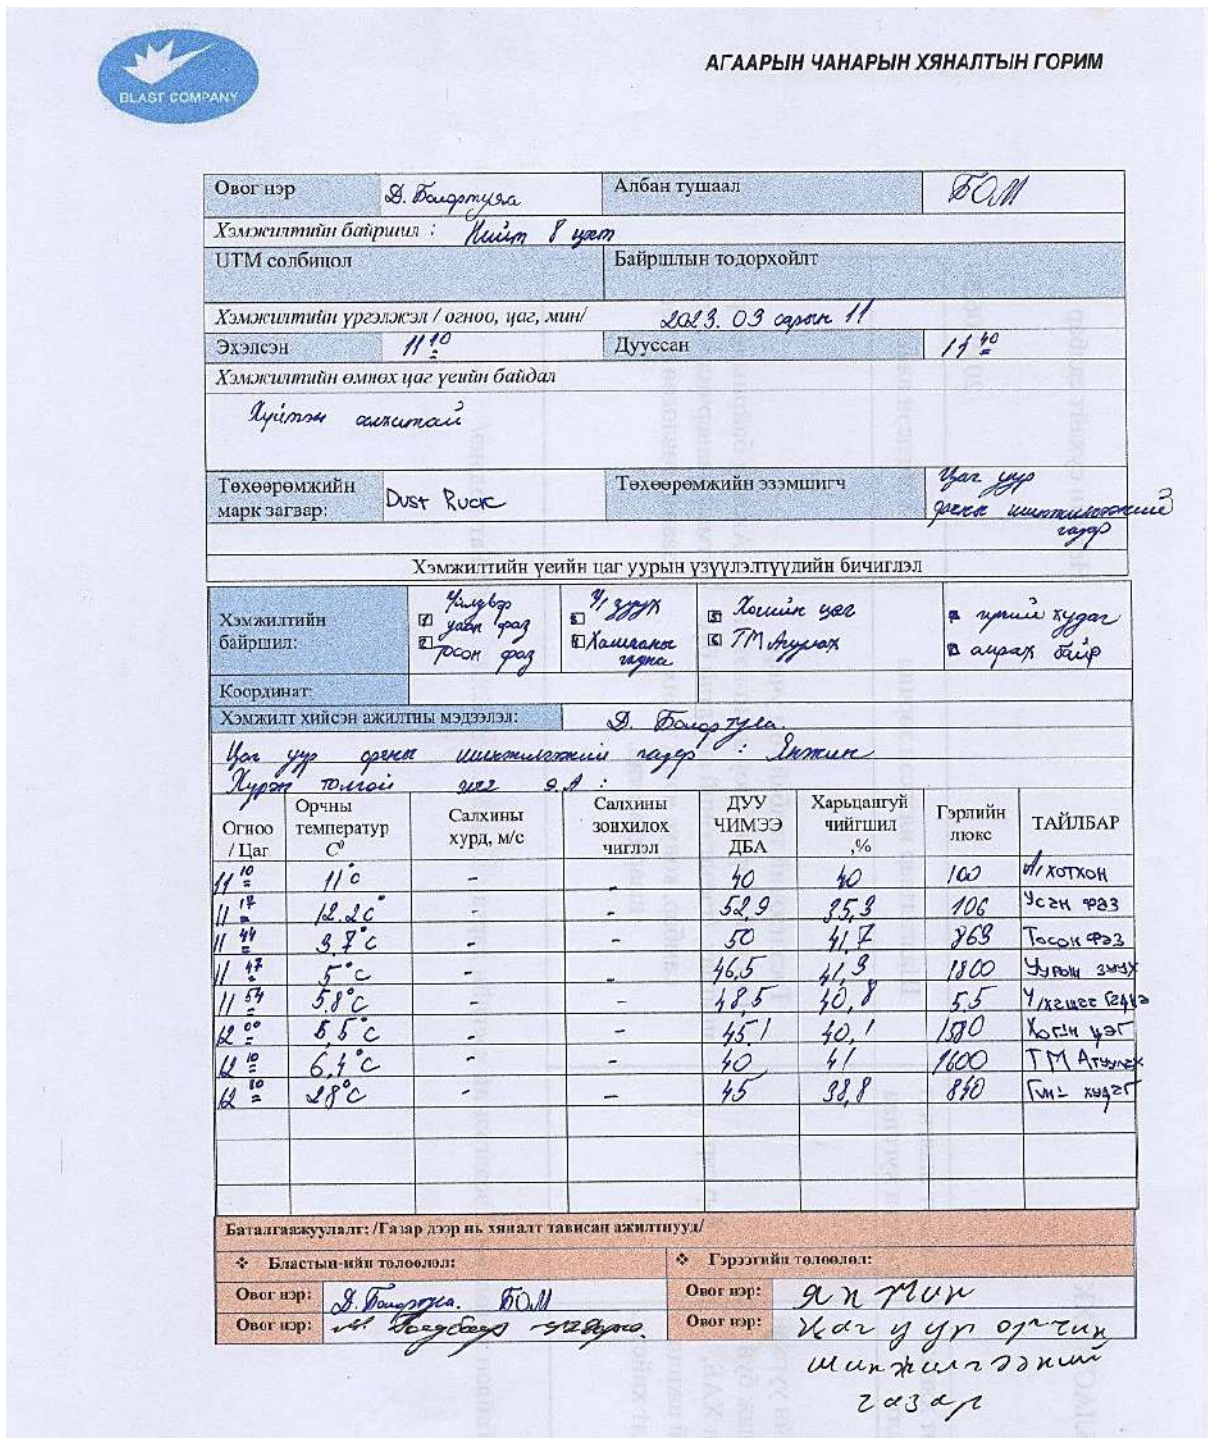 BLAST COMPANY
АГААРЫН ЧАНАРЫН ХЯНАЛТЫН ГОРИМ
Овог нэр Д. Болортуяа Албан тушаал БОМ
Хэмжилтийн байршил : Нийт 8 цэгт
UTM солбицол Байршлын тодорхойлт
Хэмжилтийн үргэлжэл / огноо, цаг, мин/ 2023. 03 сарын 11
Эхэлсэн 11 10 Дууссан 40
Хэмжилтийн өмнөх цаг үеийн байдал
Хүйтэн салхитай
Төхөөрөмжийн Төхөөрөмжийн эзэмшигч Цаг уур
марк загвар: Dust Ruck орчны шинжилгээний
газар
Хэмжилтийн үеийн цаг уурын үзүүлэлтүүдийн бичиглэл
Хэмжилтийн байршил:
Үйлдвэр
усан фаз
тосон фаз
У/зуух
Хашааны гадна
Хогийн цэг
ТМ Агуулах
гүний худаг
амрах байр
Координат:
Хэмжилт хийсэн ажилтны мэдээлэл: Д. Болортуяа.
Цаг уур орчны шинжилгээний газар : Янжин
Хүрэн толгой
Огноо / Цаг Орчны температур С⁰ Салхины хурд, м/с Салхины зонхилох чиглэл ДУУ ЧИМЭЭ ДБА Харьцангуй чийгшил ,% Гэрлийн люкс ТАЙЛБАР
11 10 11°c - - 40 40 100 А/хотхон
11 17 12.2c° - - 52,9 35,3 106 Усан фаз
11 44 3.7°c - - 50 41,7 863 Тосон фаз
11 47 5°c - - 46,5 41,3 1800 Уурын зуух
11 54 5.8°c - - 48,5 40,8 55
12 00 5,5°c - - 45.1 40,1 1580 Хогын цэг
12 10 6,4°c - - 40 41 1600 ТМ Агуулах
12 28°c - - 45 38,8 840 худаг
Баталгаажуулалт: /Газар дээр нь хяналт тависан ажилтнууд/
❖ Бластын-ийн төлөөлөл: ❖ Гэрээгийн төлөөлөл:
Овог нэр: Д. Болортуяа. БОМ Овог нэр: Янжин
Овог нэр: Овог нэр: Цаг уур орчин
шинжилгээний
газар